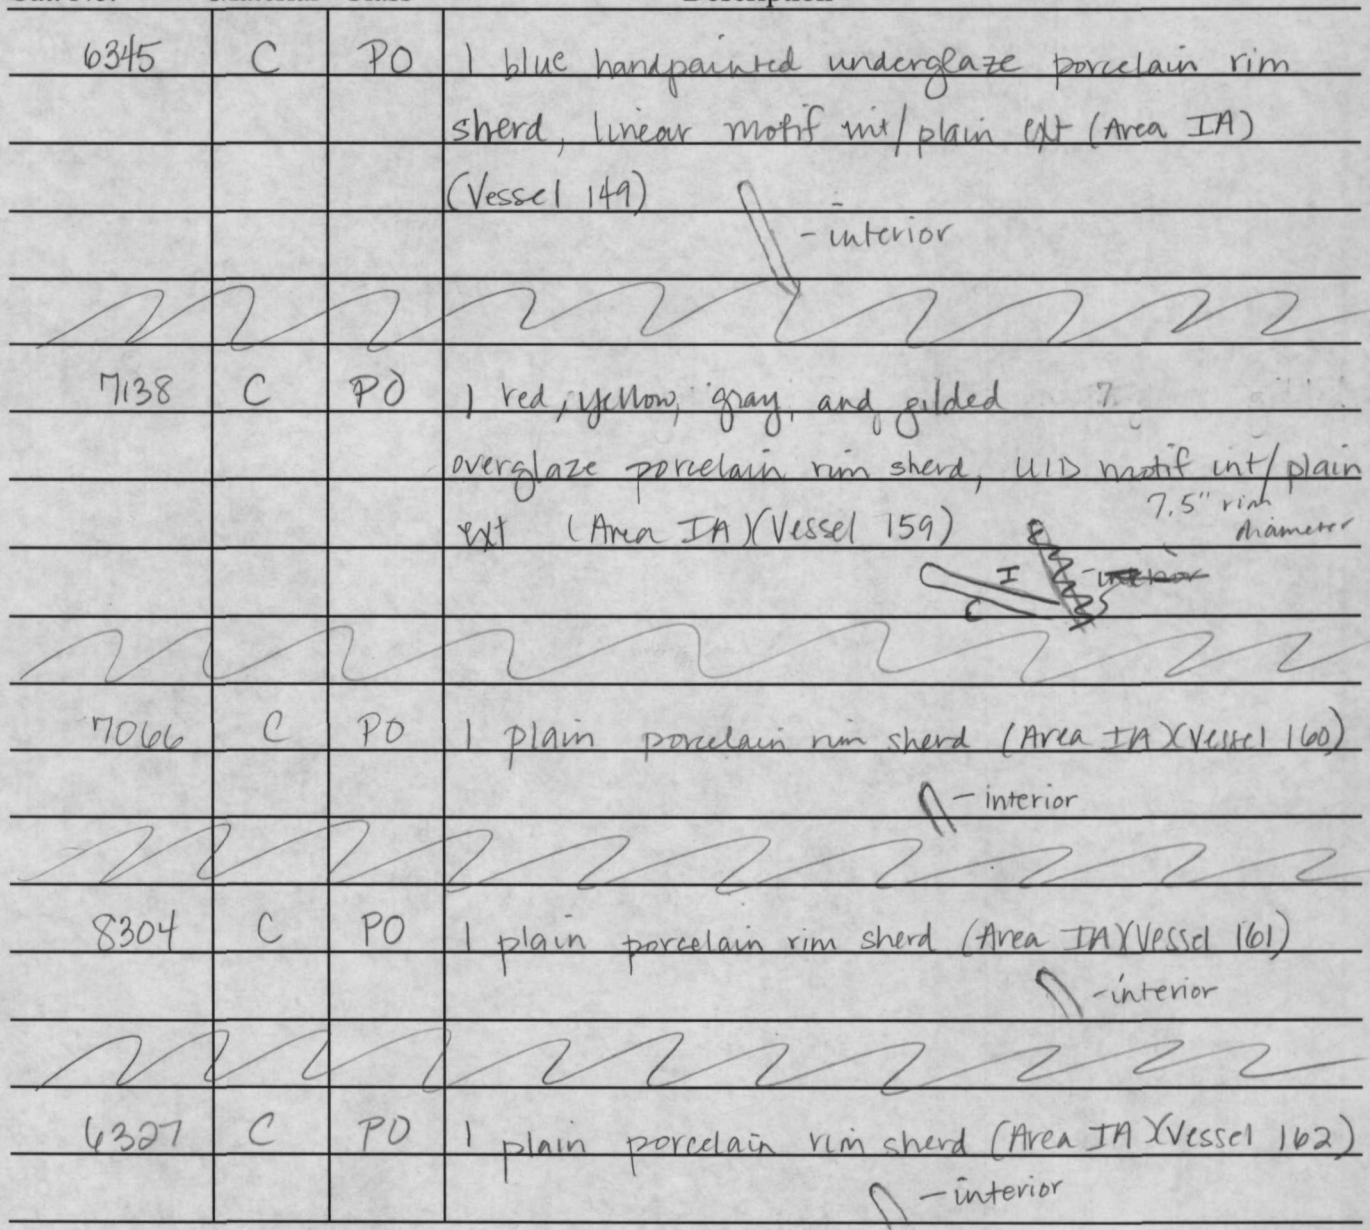 6345 C PO 1 blue handpainted underglaze porcelain rim
sherd, linear motif int/plain ext (Area IA)
(Vessel 149)
- interior
7138 C PO 1 red, yellow, gray, and gilded 7.
overglaze porcelain rim sherd, UID motif int/plain
7.5" rim
ext (Area IA)(Vessel 159)
diameter
I
7066 C PO 1 plain porcelain rim sherd (Area IA)(Vessel 160)
- interior
8304 C PO 1 plain porcelain rim sherd (Area IA)(Vessel 161)
- interior
6327 C PO 1 plain porcelain rim sherd (Area IA)(Vessel 162)
- interior